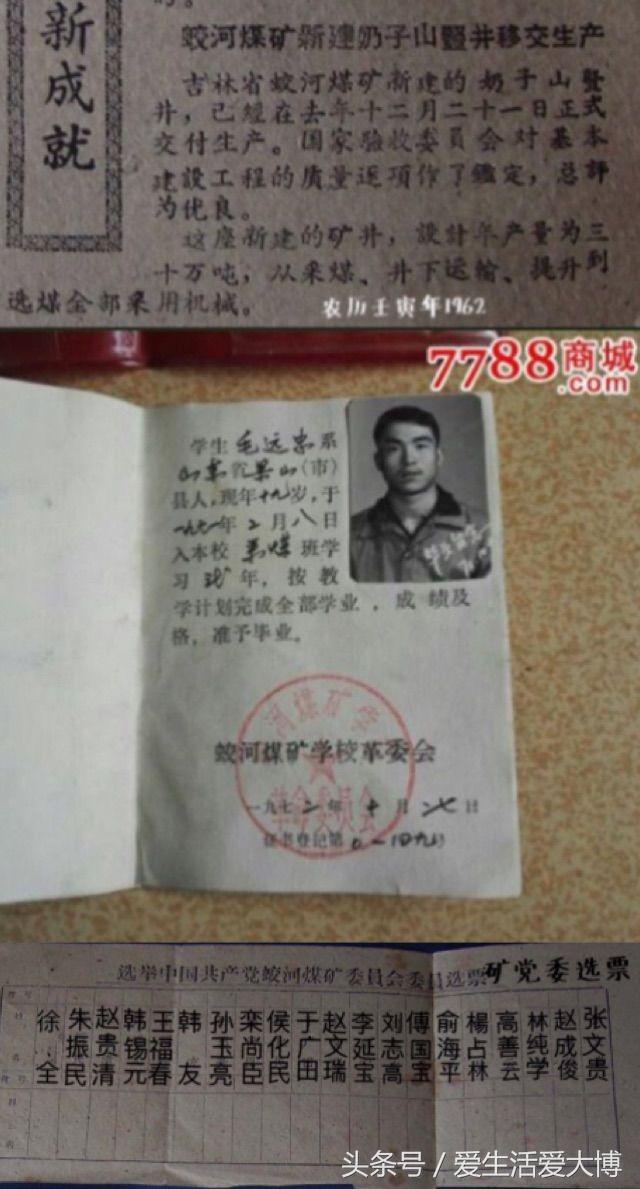 新成就
蛟河煤矿新建奶子山竪井移交生产
吉林省蛟河煤矿新建的奶子山竪
井，已经在去年十二月二十一日正式
交付生产。国家驗收委員会对基本
建設工程的质量逐項作了鑑定，总評
为优良。
这座新建的矿井，設計年产量为三
十万吨，从采煤、井下运输、提升到
选煤全部采用机械。
农历壬寅年1962
7788商城
.com
学生毛远忠系
山东省梁山(市)
县人，现年十九岁，于
一九七一年二月八日
入本校采煤班学
习年，按教
学计划完成全部学业，成绩及
格，准予毕业。
河煤矿学
蛟河煤矿学校革委会
革命委员会
一九七二年十月二七日
证书登记第
选举中国共产党蛟河煤矿委員会委員选票
矿党委选票
张文贵
赵成俊
林纯学
高善云
楊占林
俞海平
傅国宝
刘志高
李延宝
赵文瑞
于广田
侯化民
栾尚臣
孙玉亮
韩友
王福春
韩锡元
赵贵清
朱振民
徐全
头条号 / 爱生活爱大博